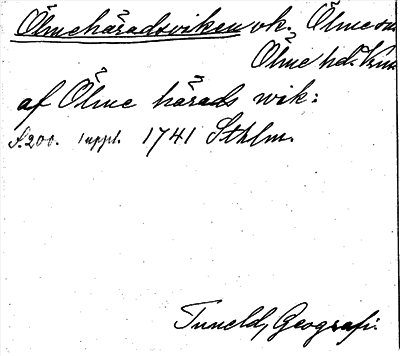 Ölmehäradsviken vk. Ölme sn
Ölme hd. Krm
af Ölme härads wik:
s. 200. 1 uppl. 1741 Sthlm.
Tuneld, Geografi.